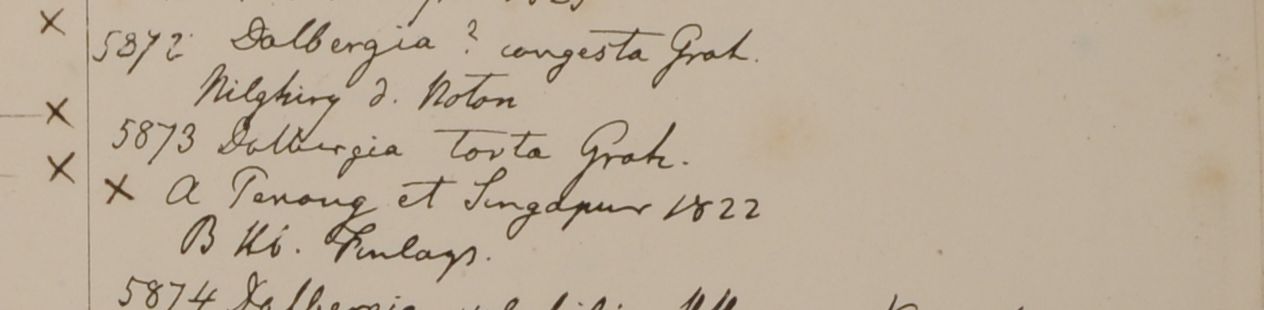 5872 Dalbergia ? congesta Grah.
Nilghiry d. Noton
5873 Dalbergia torta Grah.
× A Penang et Singapur 1822
B Hb. Finlays.
5874 Dalbergia